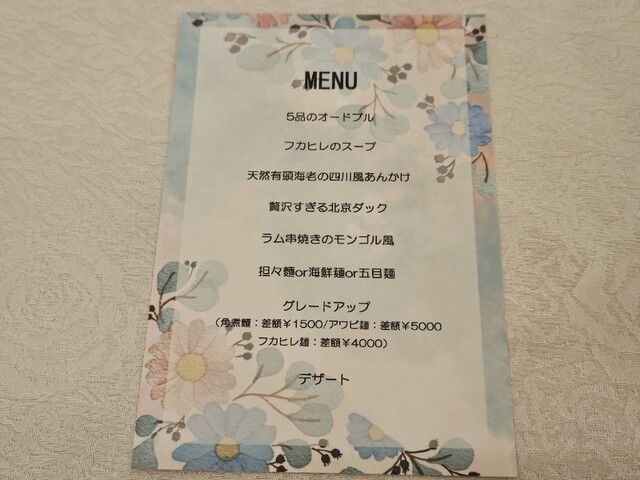 MENU
5品のオードブル
フカヒレのスープ
天然有頭海老の四川風あんかけ
贅沢すぎる北京ダック
ラム串焼きのモンゴル風
担々麺or海鮮麺or五目麺
グレードアップ
（角煮麺：差額￥1500/アワビ麺：差額￥5000
フカヒレ麺：差額￥4000）
デザート